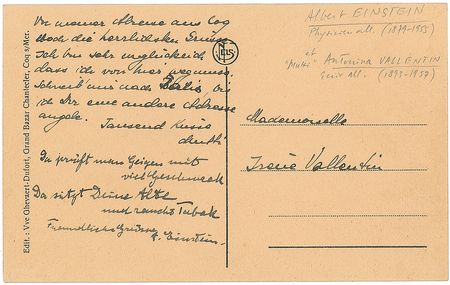 Von meiner Adresse aus Coq
noch die herzlichsten Grüsse
Ich bin sehr unglücklich
dass ich von hier weg muss.
Schreib mir nach Paris bis
ich Dir eine andere Adresse
angebe. Tausend Küsse
Da prüft man Geigen mit
viel Geschmack
Da sitzt Deine Alte
und raucht Tabak
Freundliche Grüsse
A. Einstein.
Edit. : Vve Ghevaert-Dufort, Grand Bazar Chantecler, Coq s/Mer.
NELS
Albert EINSTEIN
Physicien all. (1879-1955)
et
"Mutti" Antonina VALLENTIN
(1893-1957)
Mademoiselle
Irene Vallentin